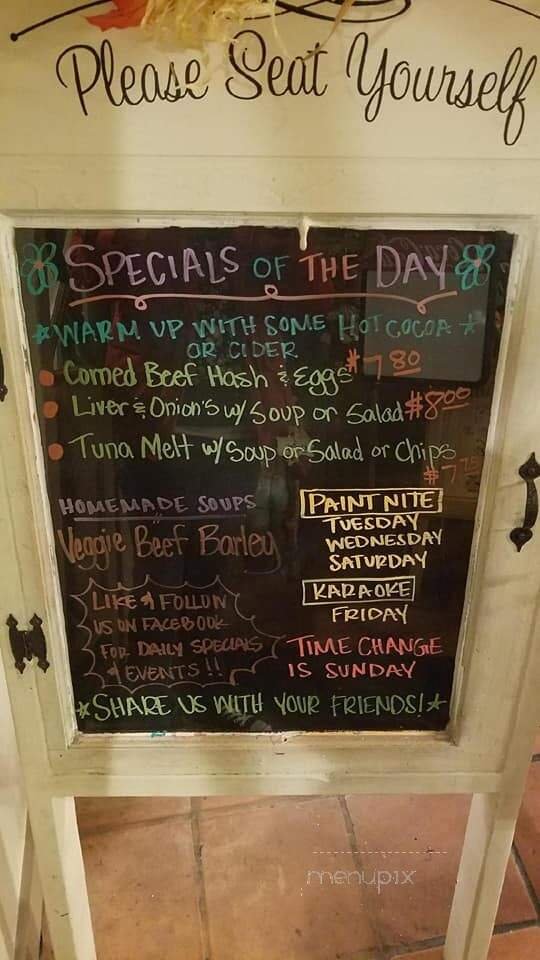 Please Seat Yourself
SPECIALS OF THE DAY
WARM UP WITH SOME HOT COCOA
OR CIDER
Corned Beef Hash & Eggs $7.80
Liver & Onion's w/ Soup or Salad $8.00
Tuna Melt w/ Soup or Salad or Chips
HOMEMADE SOUPS
Veggie Beef Barley
LIKE & FOLLOW
US ON FACEBOOK
FOR DAILY SPECIALS
& EVENTS!!
PAINT NITE
TUESDAY
WEDNESDAY
SATURDAY
KARAOKE
FRIDAY
TIME CHANGE
IS SUNDAY
SHARE US WITH YOUR FRIENDS!
menupix